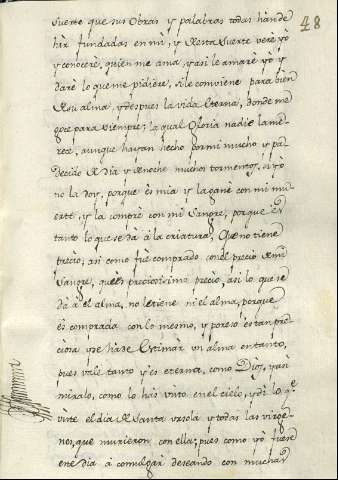 48
suerte que sus Obras y palabras todas hande
hir fundadas en mi, y desta suerte veré yo
y conoceré, quien me ama, y asi le amaré yo y
daré lo que me pidiére, si le conviene para bien
de su alma, y despues la vida eterna, donde me
goze para siempre; la qual Gloria nadie la me-
rece, aunque hayan hecho por mi mucho y pa-
decido de dia y de noche muchos tormentos, si yo
no la doy, porque és mia y la gané con mi mu-
erte, y la compre con mi sangre, porque es
tanto lo que se dà à la criatura, que no tiene
precio, asi como fué comprado con el precio de mi
sangre, que és preciosisimo precio, asi lo que se
dà à el alma, no le tiene ni el alma, porque
és comprada con lo mismo, y por eso és tan pre-
ciosa y se ha de estimàr un alma en tanto,
pues vale tanto y es eterna, como Dios, y asi
miralo, como lo hàs visto en el cielo, y di lo qe.
viste el dia de Santa Ursola y todas las virge-
nes, que murieron con ella; pues como yo fuese
ene dia à comulgàr deseando con muchas